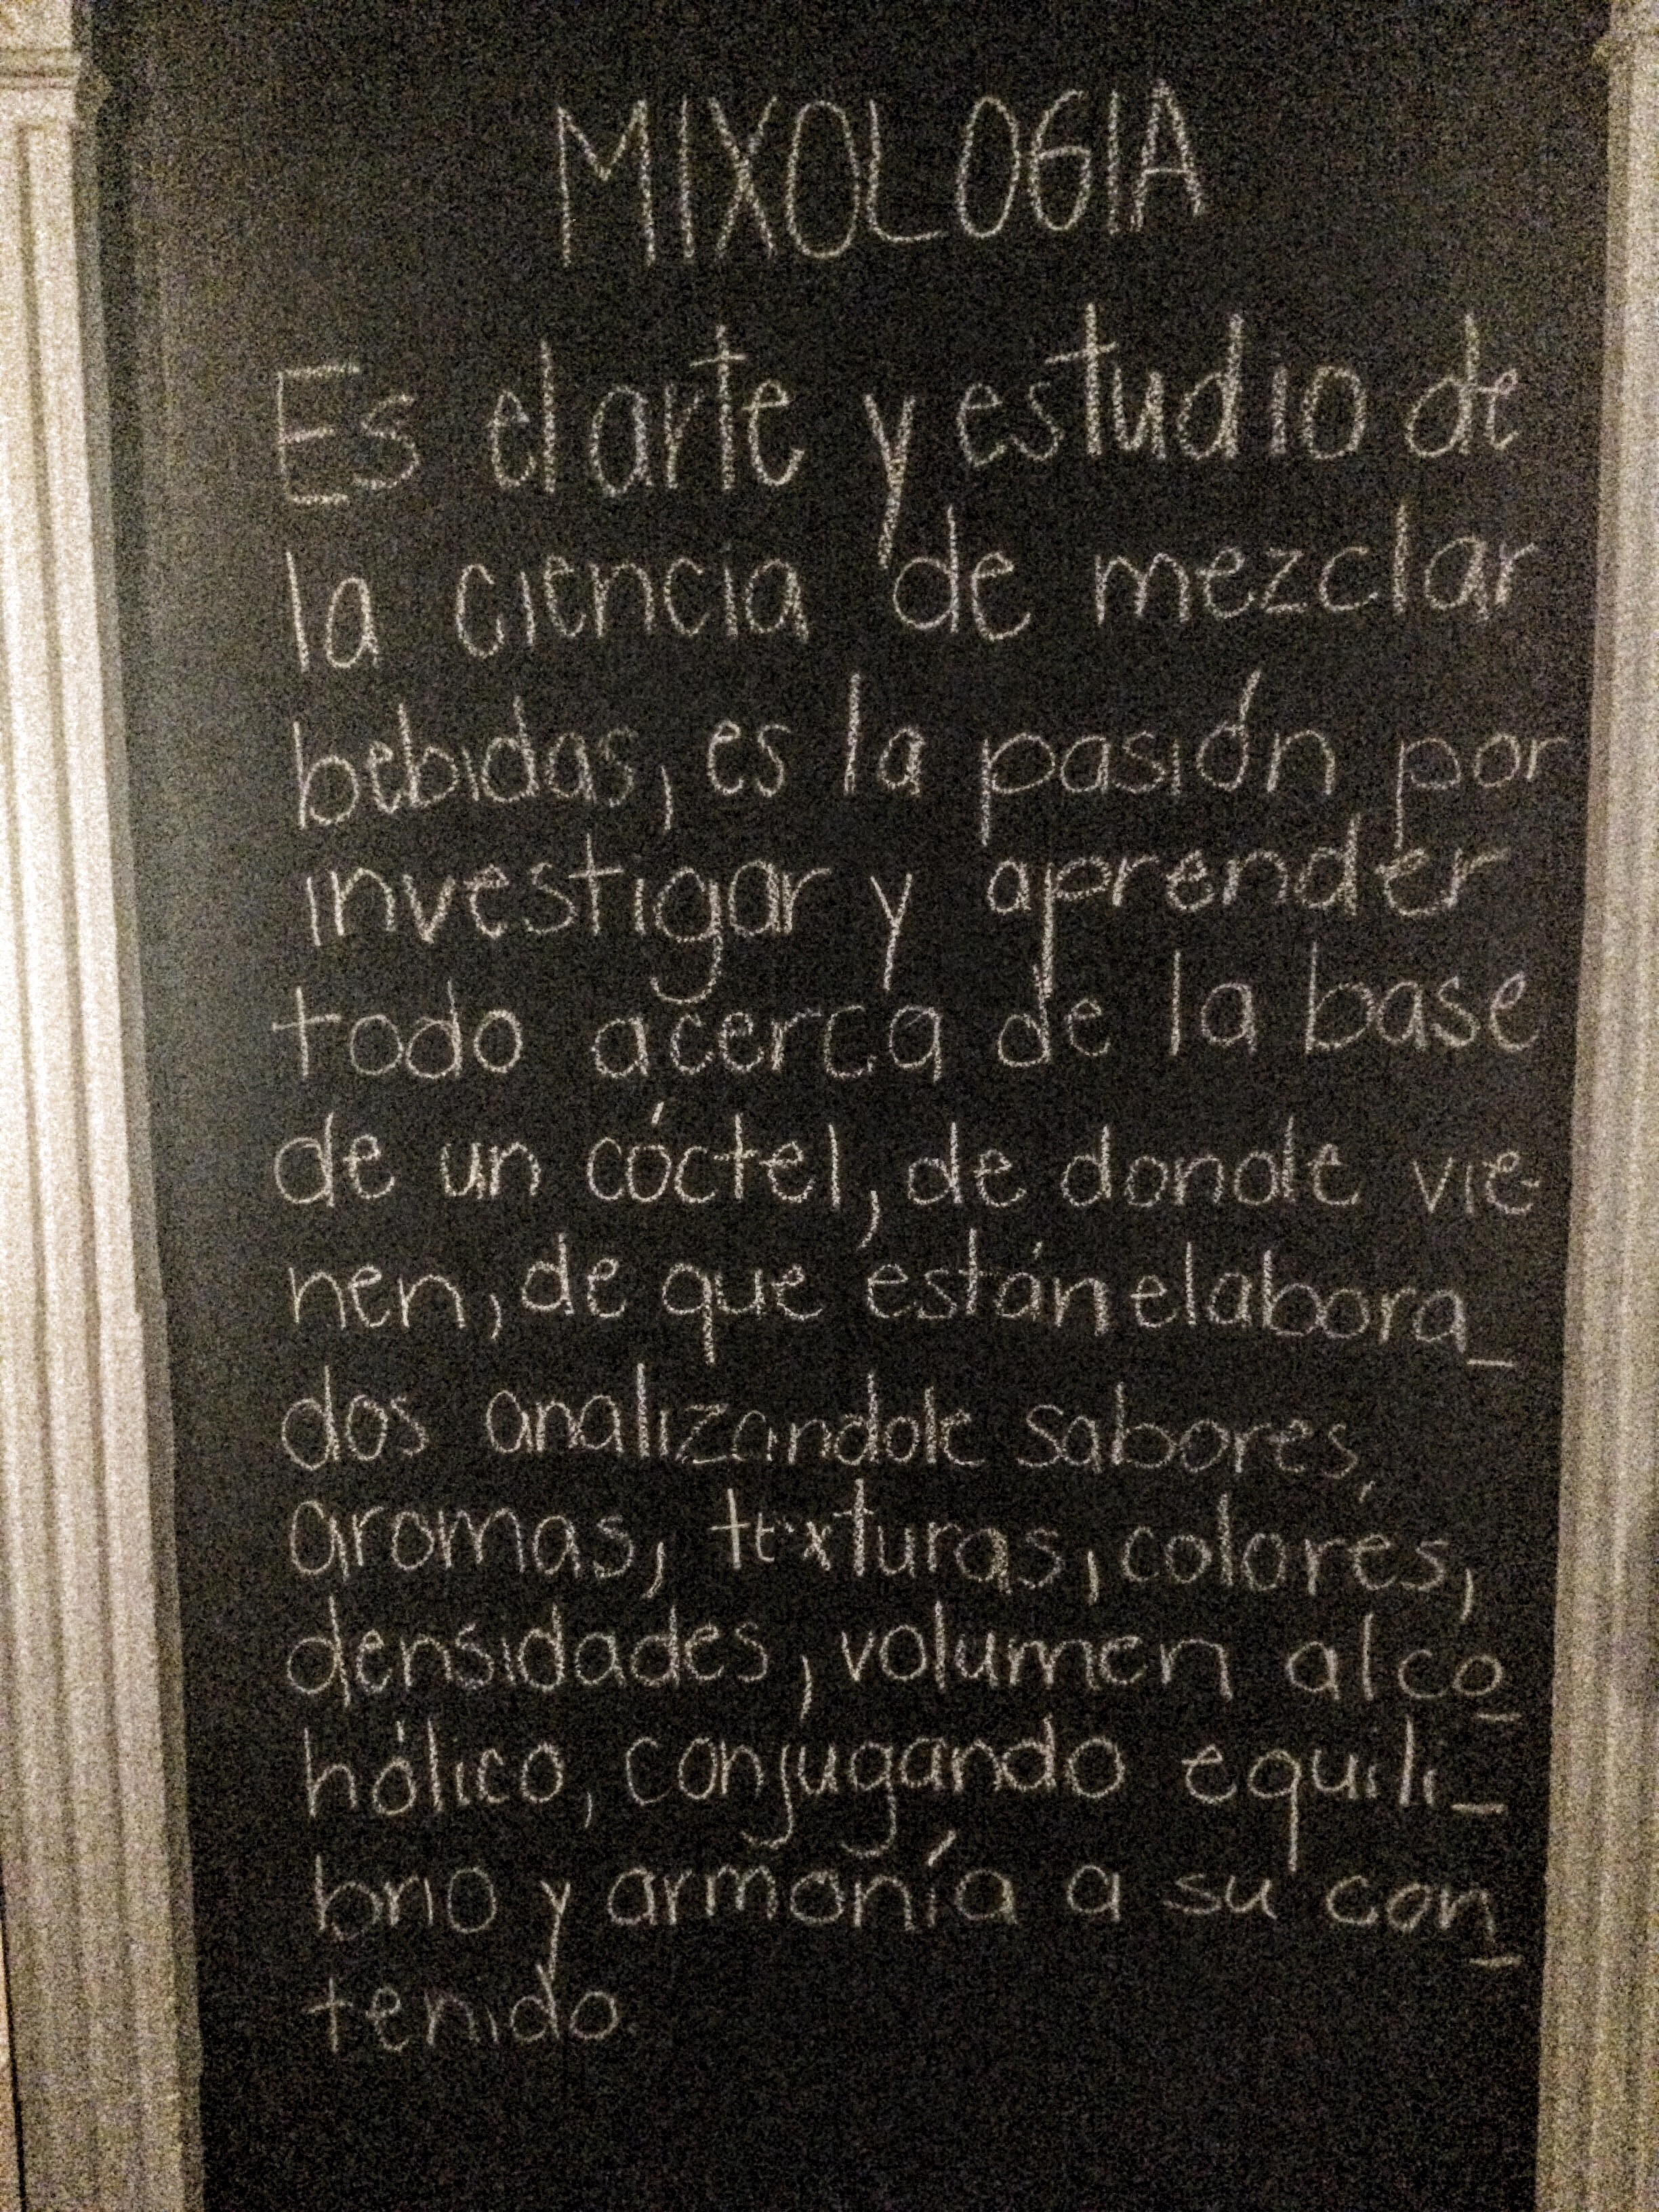 MIXOLOGIA
Es el arte y estudio de
la ciencia de mezclar
bebidas, es la pasión por
investigar y aprender
todo acerca de la base
de un cóctel, de donde vie-
nen, de que están elabora_
dos analizandole sabores,
aromas, texturas, colores,
densidades, volumen alco_
hólico, conjugando equili_
brio y armonía a su con_
tenido.